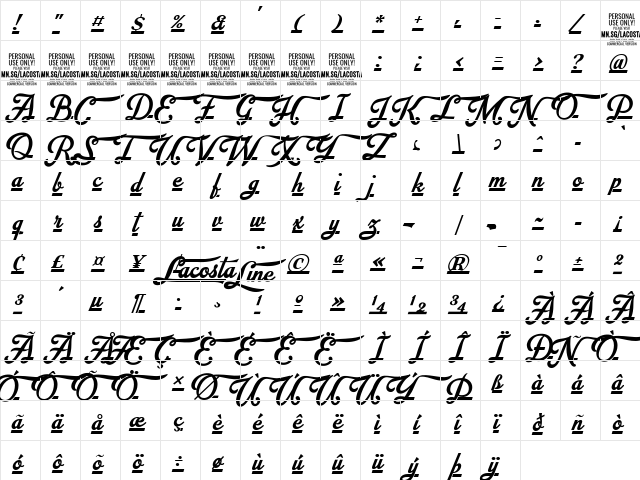 ! " # $ % & ' ( ) * + , - . / PERSONAL USE ONLY! PLEASE VISIT MN.SG/LACOSTA
PERSONAL USE ONLY! PLEASE VISIT MN.SG/LACOSTA PERSONAL USE ONLY! PLEASE VISIT MN.SG/LACOSTA PERSONAL USE ONLY! PLEASE VISIT MN.SG/LACOSTA PERSONAL USE ONLY! PLEASE VISIT MN.SG/LACOSTA PERSONAL USE ONLY! PLEASE VISIT MN.SG/LACOSTA PERSONAL USE ONLY! PLEASE VISIT MN.SG/LACOSTA PERSONAL USE ONLY! PLEASE VISIT MN.SG/LACOSTA PERSONAL USE ONLY! PLEASE VISIT MN.SG/LACOSTA PERSONAL USE ONLY! PLEASE VISIT MN.SG/LACOSTA : ; < = > ? @
A B C D E F G H I J K L M N O P
Q R S T U V W X Y Z ( \ ) ^ - `
a b c d e f g h i j k l m n o p
q r s t u v w x y z ~ | ~ - ¡
¢ £ ¤ ¥ Lacosta Line ¨ © ª « ¬ ® ¯ º ± ²
³ ´ µ ¶ · ¸ ¹ º » ¼ ½ ¾ ¿ À Á Â
Ã Ä Å Æ Ç È É Ê Ë Ì Í Î Ï Ð Ñ Ò
Ó Ô Õ Ö × Ø Ù Ú Û Ü Ý Þ ß à á â
ã ä å æ ç è é ê ë ì í î ï ð ñ ò
ó ô õ ö ÷ ø ù ú û ü ý þ ÿ